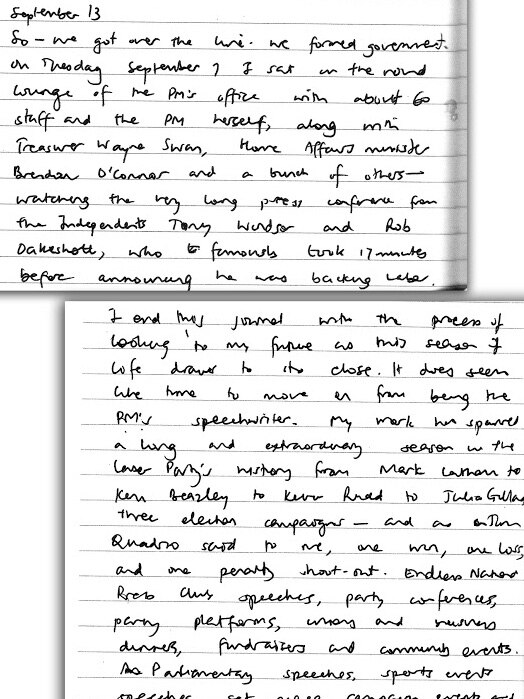 September 13
So – we got over the line. We formed government.
On Tuesday September 7 I sat in the round
lounge of the PM's office with about 60
staff and the PM herself, along with
Treasurer Wayne Swan, Home Affairs minister
Brendan O'Connor and a bunch of others –
watching the very long press conference from
the Independents Tony Windsor and Rob
Oakeshott, who famously took 17 minutes
before announcing he was backing Labor.
I end this journal with the process of
looking to my future as this season of
life draws to its close. It does seem
like time to move on from being the
PM's speechwriter. My work has spanned
a long and extraordinary season in the
Labor Party's history from Mark Latham to
Kim Beazley to Kevin Rudd to Julia Gillard
three election campaigns – and as
said to me, one win, one loss,
and one penalty shoot-out. Endless National
Press Club speeches, party conferences,
party platforms, unions and business
dinners, fundraisers and community events.
As Parliamentary speeches, sports events
speeches, set pieces, campaign events and